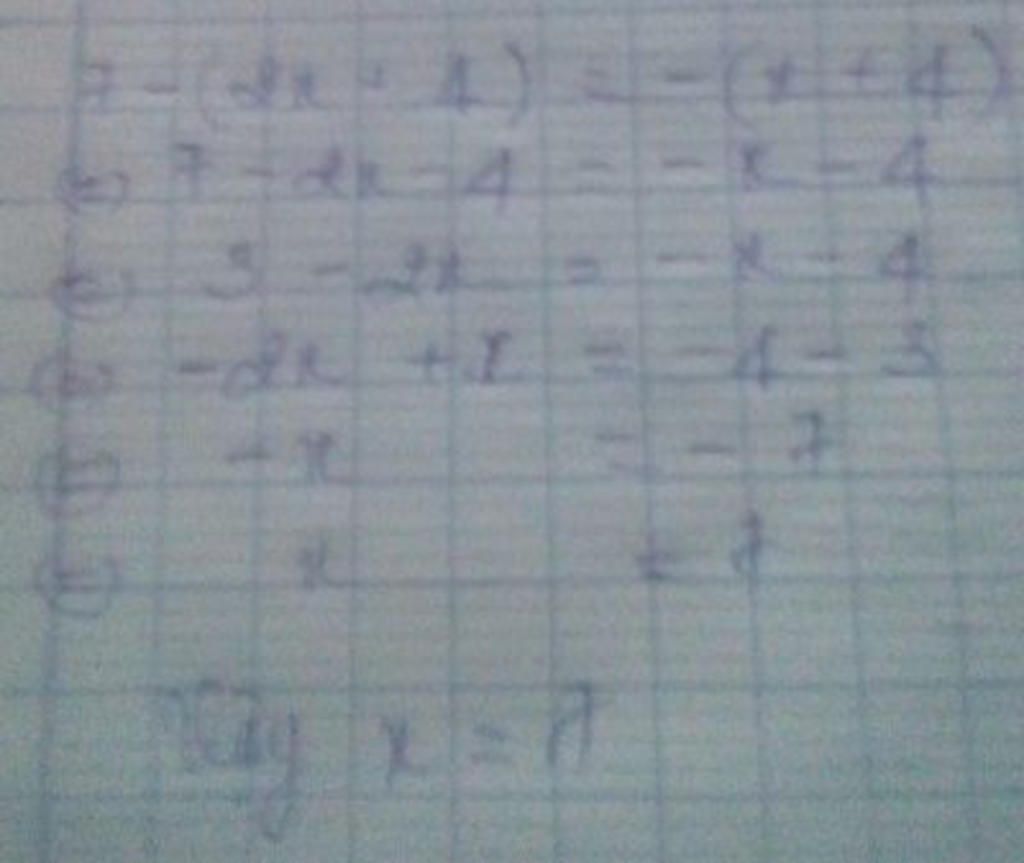 7 - (2x + 4) = -(x + 4)
⇔ 7 - 2x - 4 = - x - 4
⇔ 3 - 2x = - x - 4
⇔ -2x + x = -4 - 3
⇔ - x = - 7
⇔ x = 7
Vậy x = 7